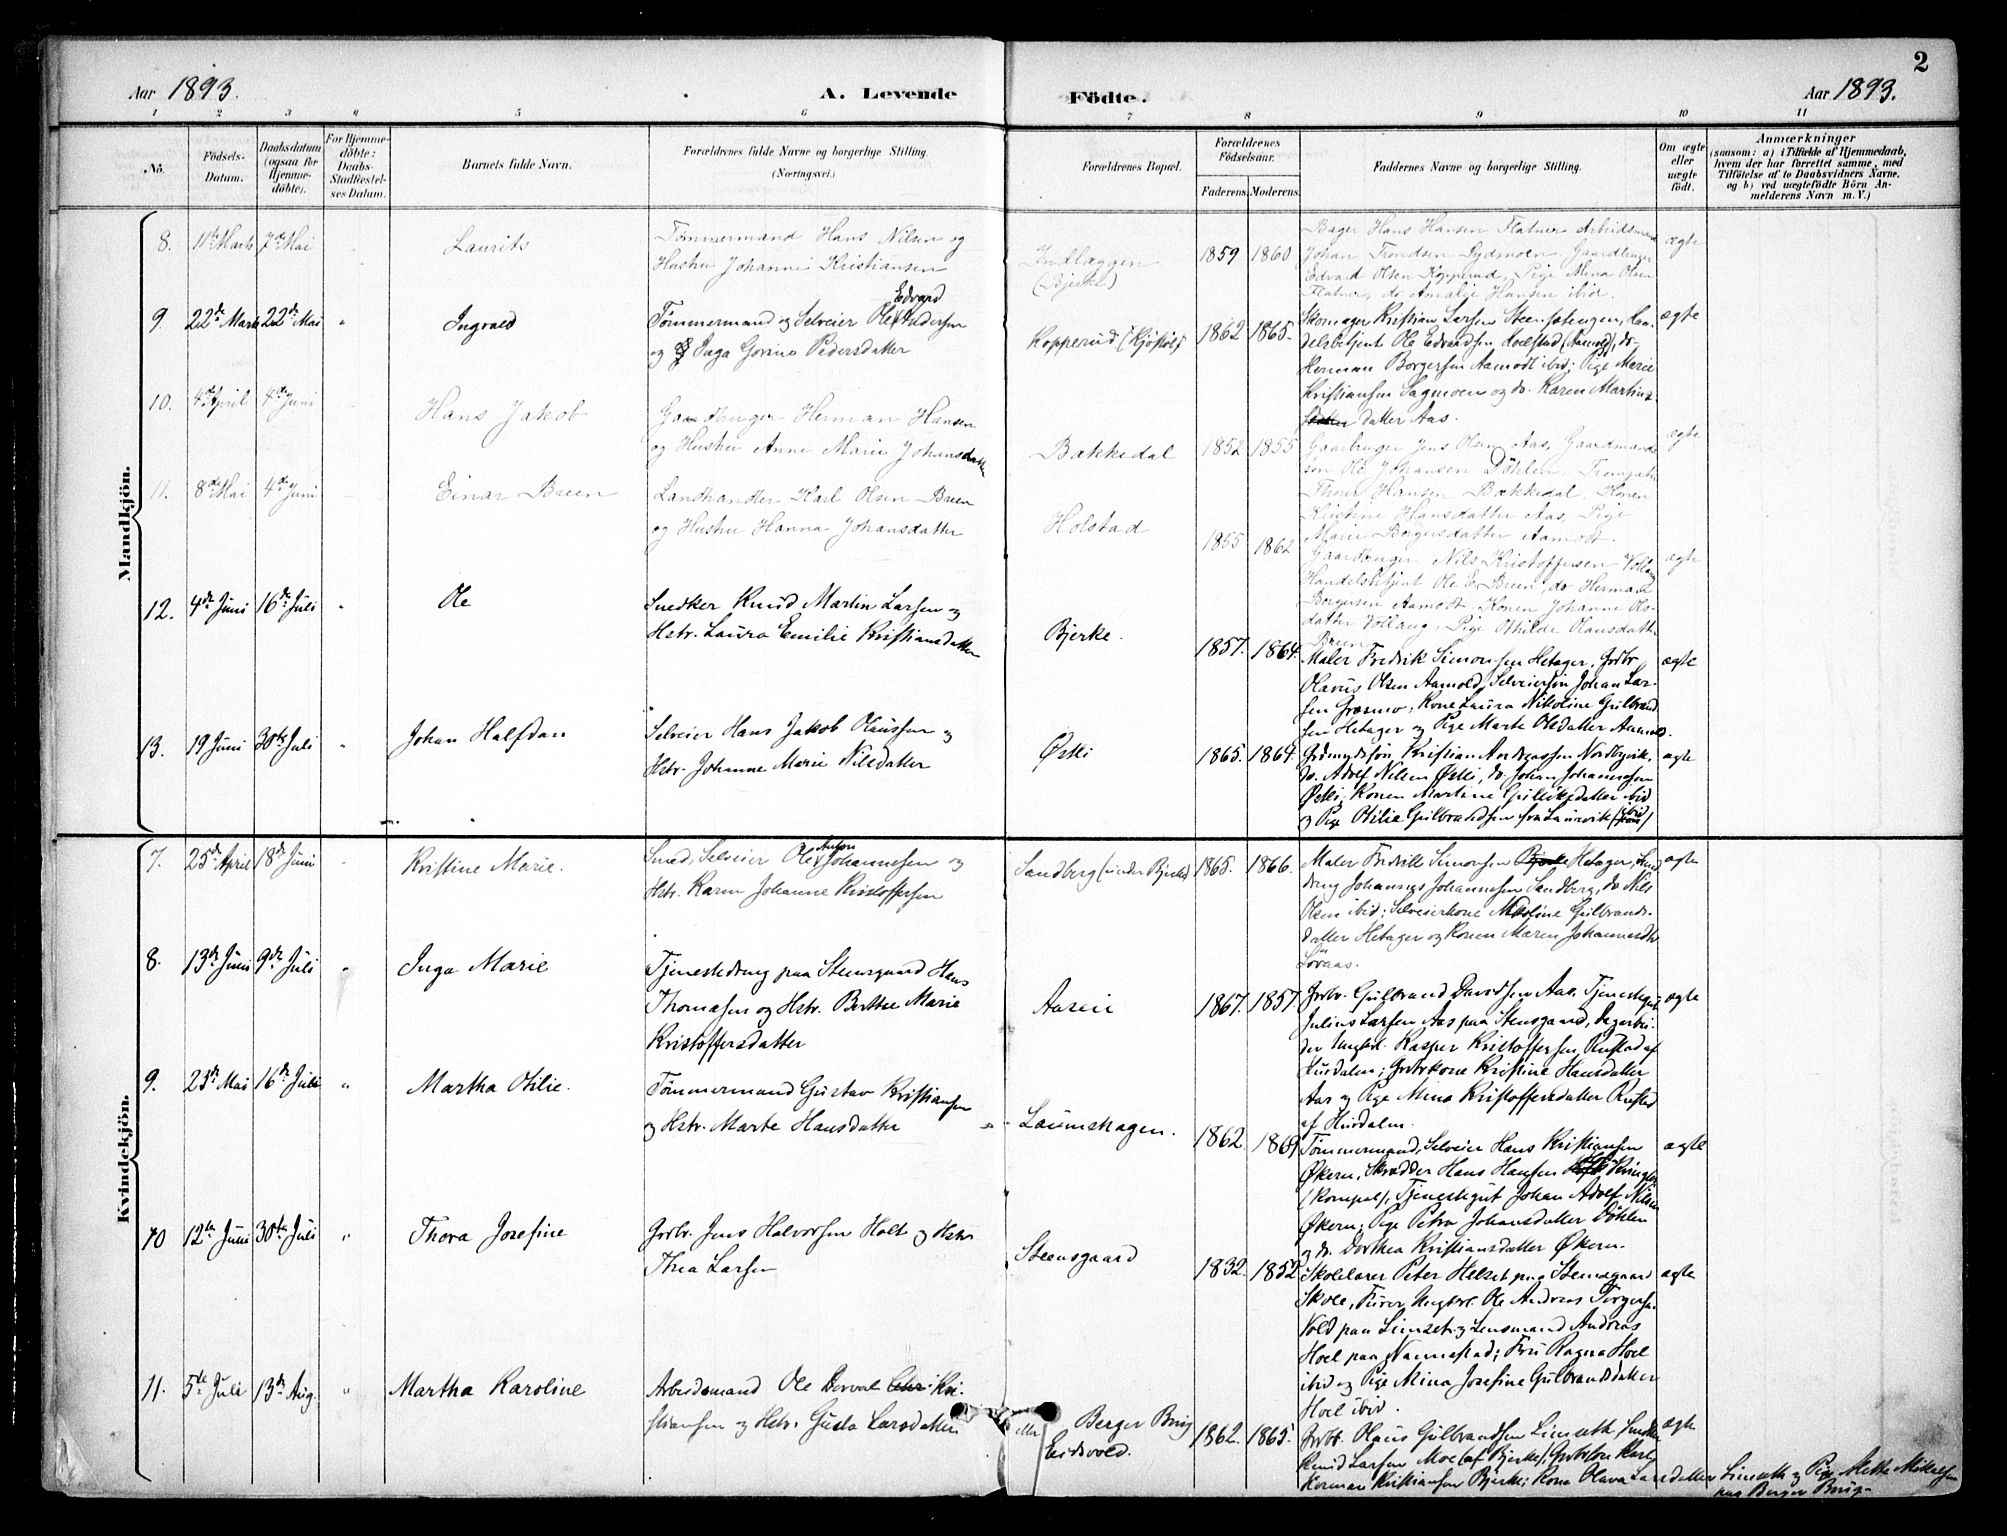 2
Aar 1893.
A. Levende
Födte.
Aar 1893.
1 2 3 4 5 6 7 8 9 10 11
No.
Födsels-Datum.
Daabsdatum (ogsaa for Hjemme-döbte).
For Hjemme-döbte: Daabs-Stadfæstel-ses Datum.
Barnets fulde Navn.
Forældrenes fulde Navne og borgerlige Stilling. (Næringsvei.)
Forældrenes Bopæl.
Forældrenes Födselsaar.
Faderens. Moderens.
Faddernes Navne og borgerlige Stilling.
Om ægte eller uægte födt.
Anmærkninger
(saasom: a) i Tilfælde af Hjemmedaab, hvem der har forrettet samme, med Tilföielse af to Daabsvidners Navne, og b) ved uægtefödte Börn Anmelderens Navn m. V.)
Mandkjön.
8. 11te Marts 7de Mai Laurits
Tømmermand Hans Nilsen og
Hustru Johanne Kristiansen
Indlæggen
(Bjerke)
1859 1860
Bager Hans Hansen Flatner Arbeidsmand
Johan Trondsen Dydmoen, Gaardbruger
Edvard Olsen Kopperud, Pige Mina Olsen
Flatner, do Amalie Hansen ibid.
ægte
9 22de Marts 22de Mai " Ingvald
Edvard
Tømmermand og Selveier Ole Andersen
og Inga Gorine Pedersdatter
Kopperud
1862 1865.
Skomager Kristian Larsen Steensstengen, Han-
delsbetjent Ole Edvardsen Holstad (Aamodt), do
Herman Borgersen Aamodt ibid; Pige Marie
Kristiansen Sagmoen og do. Karen Martins-
datter Aas.
ægte
10. 4de April 4de Juni Hans Jakob
Gaardbruger Herman Hansen
og Hustru Anne Marie Johansdatter
Bækkedal
1852 1855
Gaardbruger Jens Olsen Aas, Gaardmands-
søn Ole Johansen Döhlen
Thora Hansen Bækkedal, Konen
Kristine Hansdatter Aas, Pige
Marie Borgersdatter Aamodt.
ægte
11. 8de Mai 4de Juni Einar Breen
Landhandler Karl Olsen Breen
og Hustru Hanna Johansdatter
Holstad
1855 1862
Gaardbruger Nils Kristoffersen Vollaug
Handelsbetjent Ole E. Breen, do Herman
Borgersen Aamodt, Konen Johanne Ols-
datter Vollaug, Pige Othilde Hansdatter
Breen
ægte
12. 4de Juni 16de Juli " Ole
Snedker Knud Martin Larsen og
Hstr. Laura Emilie Kristiansdatter
Bjerke.
1857. 1864.
Maler Fredrik Simonsen Hetager, Grdbr
Olavus Olsen Aamold, Selveiersøn Johan Lar-
sen Græsmo; Kone Laura Nikoline Gulbrand
sen Hetager og Pige Marte Olsdatter
ægte
13. 19 Juni 30te Juli " Johan Halfdan
Selveier Hans Jakob Olaussen og
Hstr. Johanne Marie Nilsdatter
Øski
1865. 1864.
Kristian Andreassen Nordbyvik,
do. Adolf Nilsen Øski, do. Johan Johannessen
Øski; Konen Martine Gulliksdatter ibid
og Pige Otilie Gulbrandsen fra Laurvik
ægte
Kvindekjön.
7. 25de April 18de Juni Kristine Marie.
Anton
Smed, Selveier Ole Johannessen og
Hstr. Karen Johanne Kristoffersen
Sandberg (under Bjerke)
1865. 1866.
Maler Fredrik Simonsen Hetager, Smed
dreng Johannes Johannessen Sandberg, do Nils
Olsen ibid; Selveierkone Nikoline Gulbrands-
datter Hetager og Konen Maren Johannesdtr
Løvaas.
ægte
8. 13de Juni 9de Juli " Inga Marie
Tjenestedreng paa Steensgaard Hans
Thomasen og Hstr. Berthe Marie
Kristoffersdatter
Aasen
1867. 1857
Grdbr. Gulbrand Davidsen Aas, Tjenestegut
Julius Larsen Aas paa Stensgaard, Dagarbei-
der Ungkl. Kasper Kristoffersen Rustad af
Hurdalen; Grdbrkone Kristine Hansdatter
Aas og Pige Mina Kristoffersdatter Rustad
af Hurdalen.
ægte
9. 23de Mai 16de Juli " Martha Otilie.
Tømmermand Gustav Kristiansen
og Hstr. Marte Hansdatter
Laumshagen.
1862. 1864
Tømmermand, Selveier Hans Kristiansen
Økern, Skrædder Hans Hansen
Tjenestegut Johan Adolf Nilsen
Økern; Pige Petra Johansdatter Döhlen
og do. Dorthea Kristiansdatter Økern.
ægte
10 12te Juni 30te Juli " Thora Josefine
Grdbr. Jens Halvorsen Holt og Hstr.
Thea Larsen
Steensgaard
1832. 1852
Skolelærer Peter Helset paa Stensgaard
Skole, Ungkl. Ole Andreas Torgersen
Vold paa Limset og Lensmand Andreas
Hoel paa Nannestad; Fru Ragna Hoel
ibid og Pige Mina Josefine Gulbrandsdatter
Hoel ibid.
ægte
11. 5te Juli 13de Aug. " Martha Karoline
Arbeidsmand Ole Dorval Kri-
stiansen og Hstr. Gusta Larsdatter
Berger Brug
Eidsvold.
1862. 1865.
Grdbr. Olaus Gulbrandsen Limseth, Snedker
Knud Larsen Moe (af Bjerke), Karl
Herman Kristiansen Bjerke; Kone Olava Larsdatter Limseth og Pige Mette Mikkelsen
paa Berger Brug.
ægte